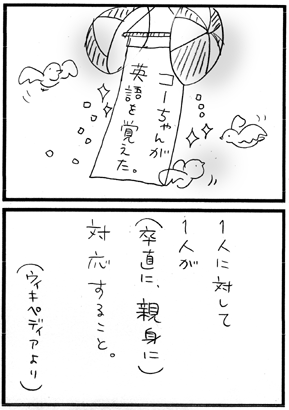 コーちゃんが
英語を覚えた。
1人に対して
1人が
(卒直に、親身に)
対応すること。
(ウィキペディアより)